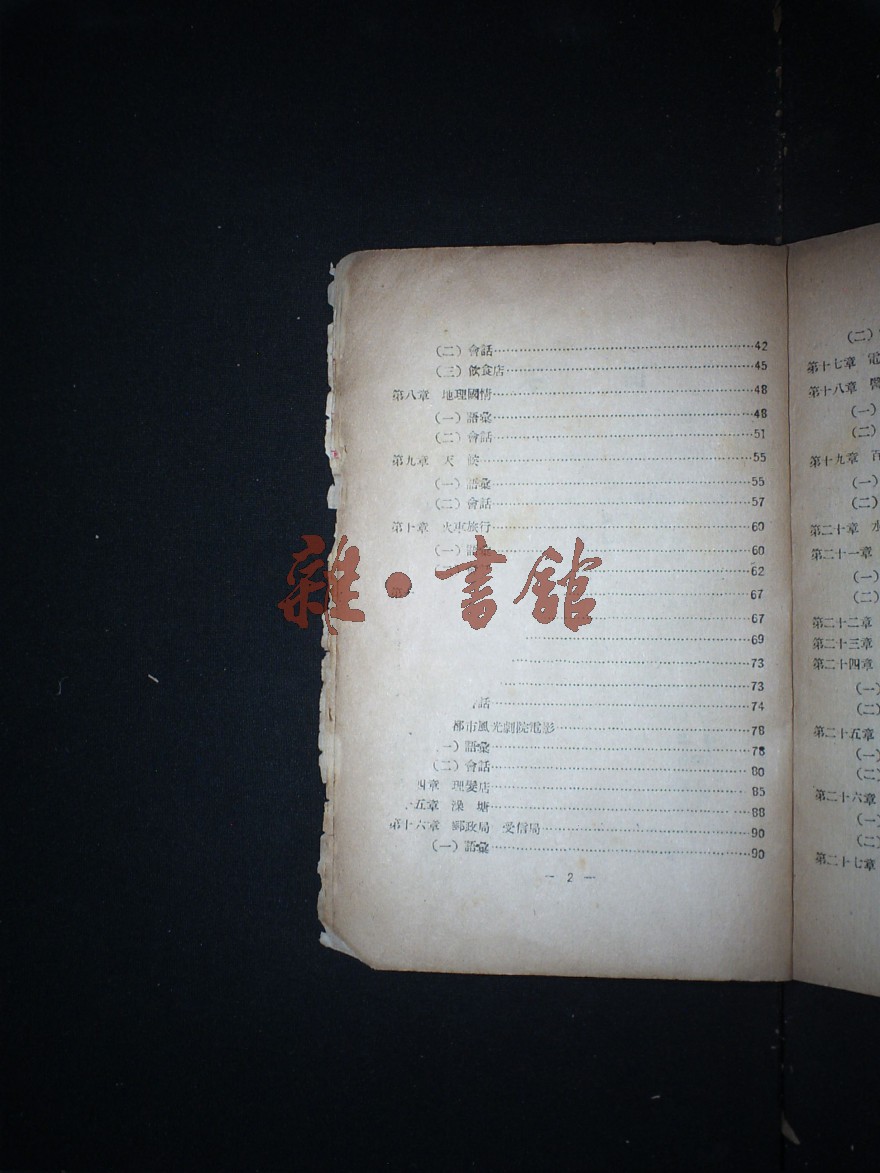 (二) 會話 42
(三) 飲食店 45
第八章 地理國情 48
(一) 語彙 48
(二) 會話 51
第九章 天候 55
(一) 語彙 55
(二) 會話 57
第十章 火車旅行 60
(一) 語彙 60
62
67
67
69
73
73
話 74
都市風光劇院電影 78
一) 語彙 78
(二) 會話 80
四章 理髮店 85
五章 澡塘 88
第十六章 郵政局 受信局 90
(一) 語彙 90
— 2 —
雜·書館
(二)
第十七章 電
第十八章
(一)
(二)
第十九章 百
(一)
(二)
第二十章 水
第二十一章
(一)
(二)
第二十二章
第二十三章
第二十四章
(一)
(二)
第二十五章
(一)
(二)
第二十六章
(一)
(二)
第二十七章